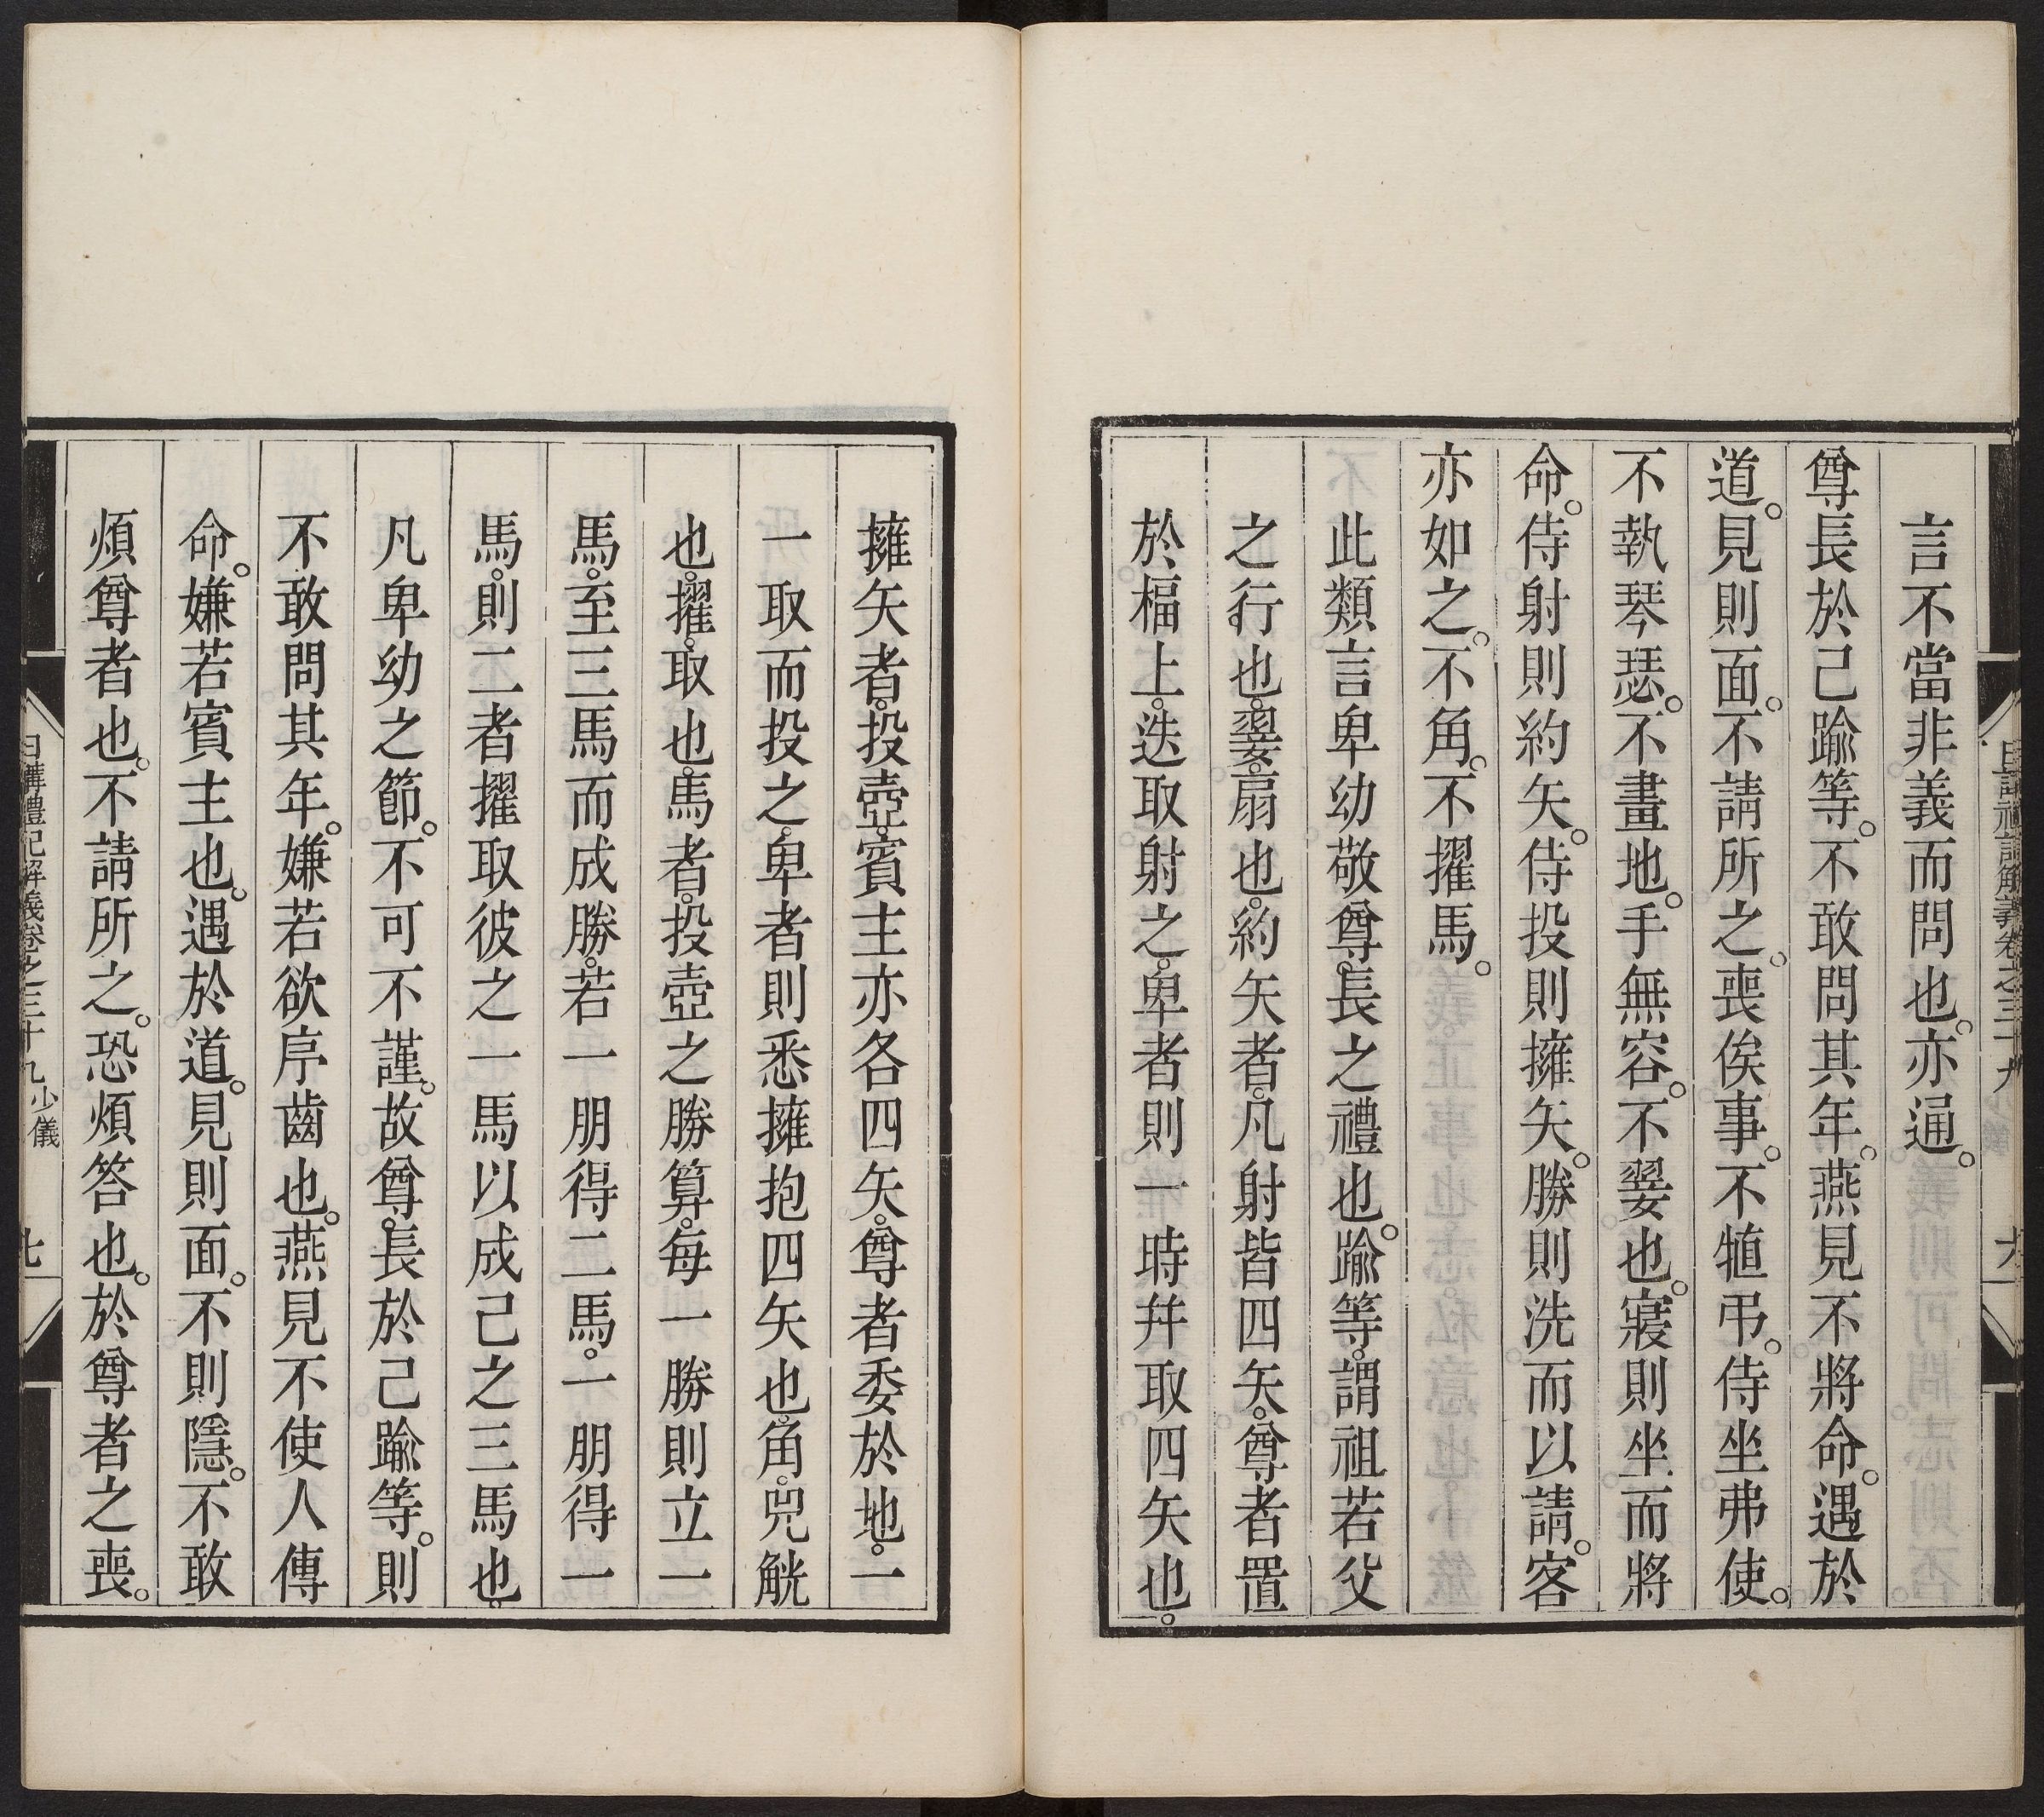 言不當非義而問也。亦通。
尊長於己踰等。不敢問其年。燕見不將命。遇於
道。見則面。不請所之。喪俟事。不犆弔。侍坐弗使。
不執琴瑟。不畫地。手無容。不翣也。寢則坐而將
命。侍射則約矢。侍投則擁矢。勝則洗而以請。客
亦如之。不角。不擢馬。
此類言卑幼敬尊長之禮也。踰等。謂祖若父
之行也。翣。扇也。約矢者。凡射皆四矢。尊者置
於楅上。迭取射之。卑者則一時幷取四矢也。
擁矢者。投壺。賓主亦各四矢。尊者委於地。一
一取而投之。卑者則悉擁抱四矢也。角。兕觥
也。擢。取也。馬者。投壺之勝算。每一勝則立一
馬。至三馬而成勝。若一朋得二馬。一朋得一
馬。則二者擢取彼之一馬以成己之三馬也。
凡卑幼之節。不可不謹。故尊長於己踰等。則
不敢問其年。嫌若欲序齒也。燕見不使人傳
命。嫌若賓主也。遇於道。見則面。不則隱。不敢
煩尊者也。不請所之。恐煩答也。於尊者之喪。
日講禮記解義卷之三十九 少儀 七